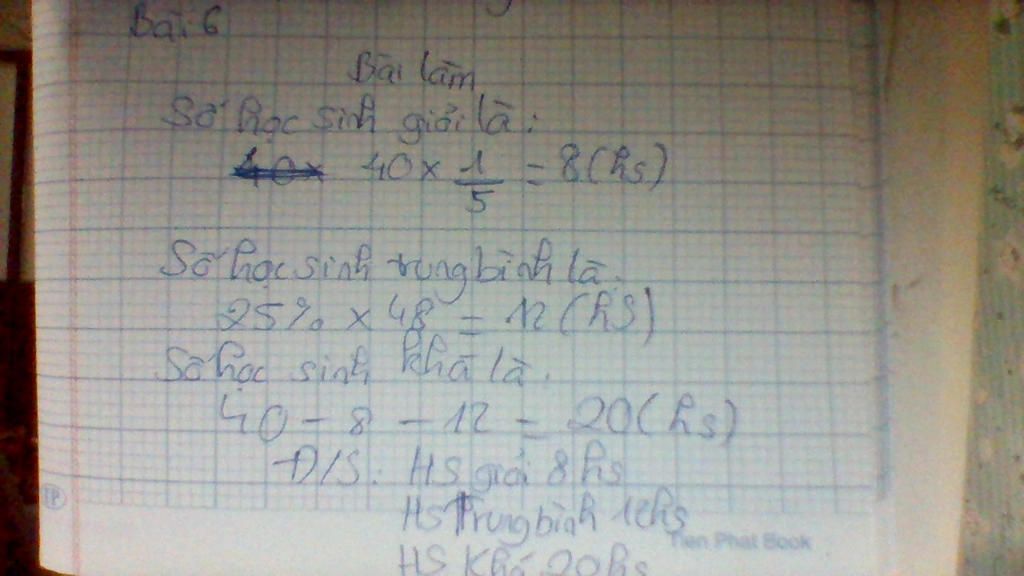 Bài 6
Bài làm
Số học sinh giỏi là:
40x 40 x 1/5 = 8 (hs)
Số học sinh trung bình là:
25% x 48 = 12 (hS)
Số học sinh khá là:
40 - 8 - 12 = 20 (hs)
Đ/S: HS giỏi 8 hs
HS Trung bình 12 hs
HS Khá 20 hs
TP
Tien Phat Book